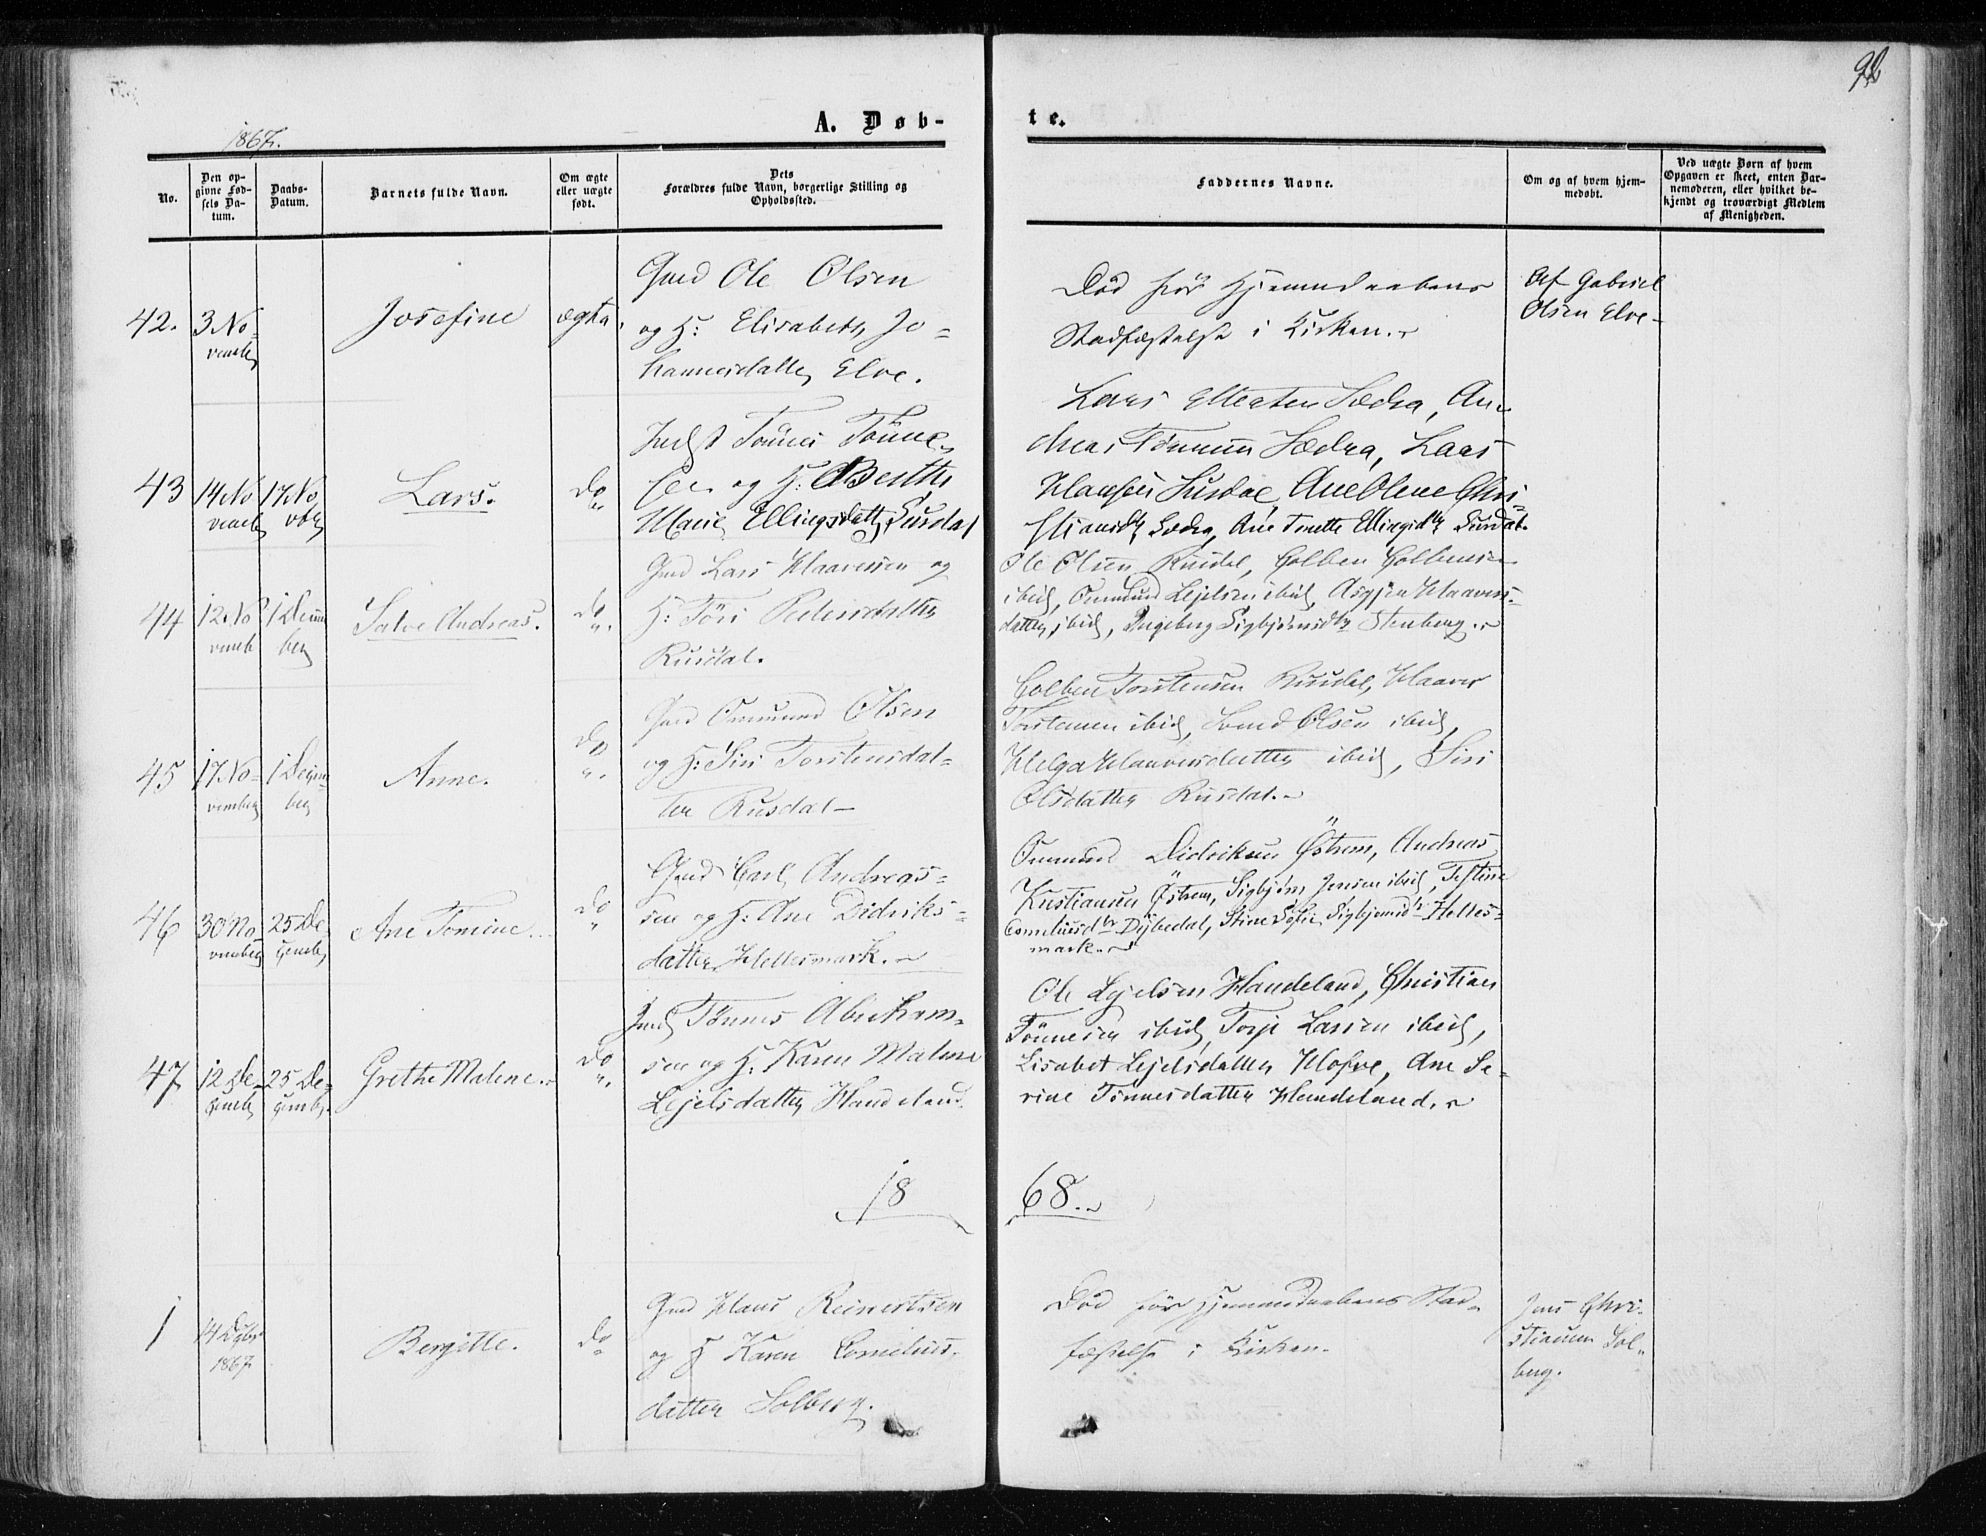 92
A. Døb-
te.
1867.
No.
Den op-
givne Fød-
sels Da-
tum.
Daabs-
Datum.
Barnets fulde Navn.
Om ægte
eller uægte
født.
Dets
Forældres fulde Navn, borgerlige Stilling og
Opholdssted.
Faddernes Navne.
Om og af hvem hjem-
medøbt.
Ved uægte Børn af hvem
Opgaven er skeet, enten Bar-
nemoderen, eller hvilket be-
kjendt og troværdigt Medlem
af Menigheden.
42.
3 No-
vember
Josefine
ægte.
Gmd Ole Olsen
og H: Elisabeth Jo-
hannesdatter Elve.
Död för Hjemmedaabens
Stadfæstelse i Kirken.
Af Gabriel
Olsen Elve
43
14 No
vember
17 No
vbr
Lars.
Do
Indst Tönnes Tönne-
sen og H: Berthe
Marie Ellingsdatter Surdal
Lars Sædra, An-
dreas Tönnesen Sædra, Lars
Hansen Surdal, Ane Olene Chri-
stiansdtr Sædra, Ane Tonette Ellingsdtr Surdal.
44
12 No
vemb
1 Decem
ber
Salve Andreas.
Do
Gmd Lars Haaversen og
H: Töri Pedersdatter
Rusdal.
Ole Olsen Rusdal, Golben Golbensen
ibid, Ommund Lejelsen ibid, Asgjer Haavers-
datter ibid, Ingeborg Sigbjörnsdtr Stenberg.
45
17 No-
vember
1 Decem-
ber
Anne.
Do
Gmd Ommund Olsen
og H: Siri Torstensdat-
ter Rusdal
Golben Torstensen Rusdal, Haaver
Torstensen ibid, Olsen ibid,
Helga Haaversdatter ibid, Siri
Olsdatter Rusdal.
46
30 No-
vember
25 De-
cember
Ane Tomine.
Do
Gmd Carl Andreas-
sen og H: Ane Didriks-
datter Hettesmark.
Ommund Didriksen Östrem, Andreas
Kristiansen Östrem, Sigbjørn Jensen ibid, Testine
Corneliusdtr Dybedal, Stine Sofie Sigbjörnsdtr Hettes-
mark.
47
12 De-
cember
25 De-
cember
Grethe Malene.
Do
Indst Tönnes Abraham-
sen og H: Karen Malene
Lejelsdatter Handeland.
Ole Lejelsen Handeland, Christian
Tönnesen ibid, Torje Larsen ibid,
Lisabet Lejelsdatter Hofve, Ane Se-
rine Tönnesdatter Handeland.
18
68.
1
14 Decbr
1867
Bergitte.
Do
Gmd Hans Reinertsen
og H Karen Cornelius-
datter Solberg.
Död för Hjemmedaabens Stad-
fæstelse i Kirken.
Jens Chri-
stiansen Sol-
berg.